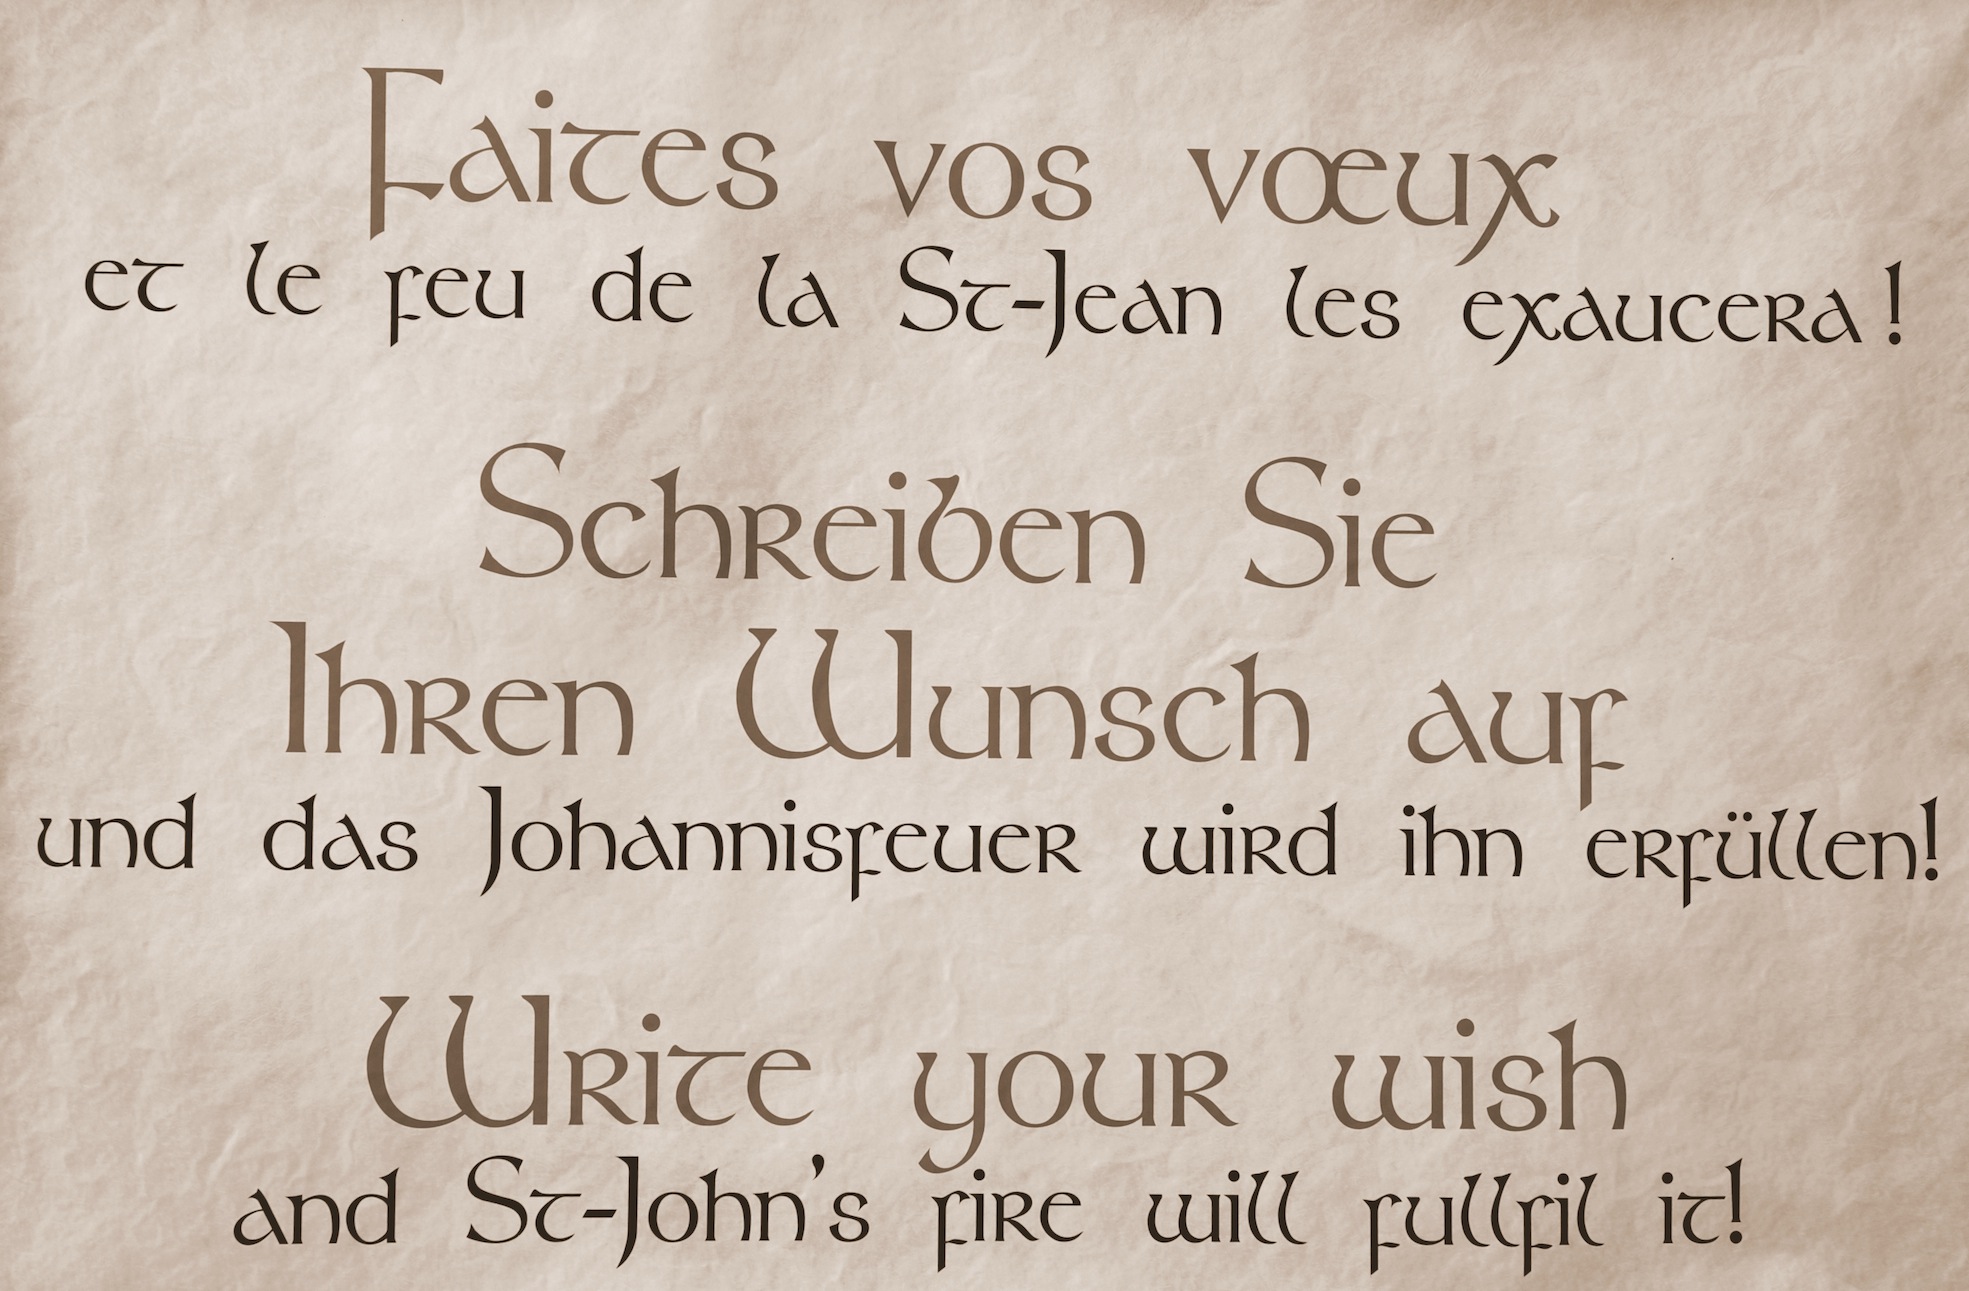 Faites vos vœux
et le feu de la St-Jean les exaucera !
Schreiben Sie
Ihren Wunsch auf
und das Johannisfeuer wird ihn erfüllen!
Write your wish
and St-John's fire will fullfil it!